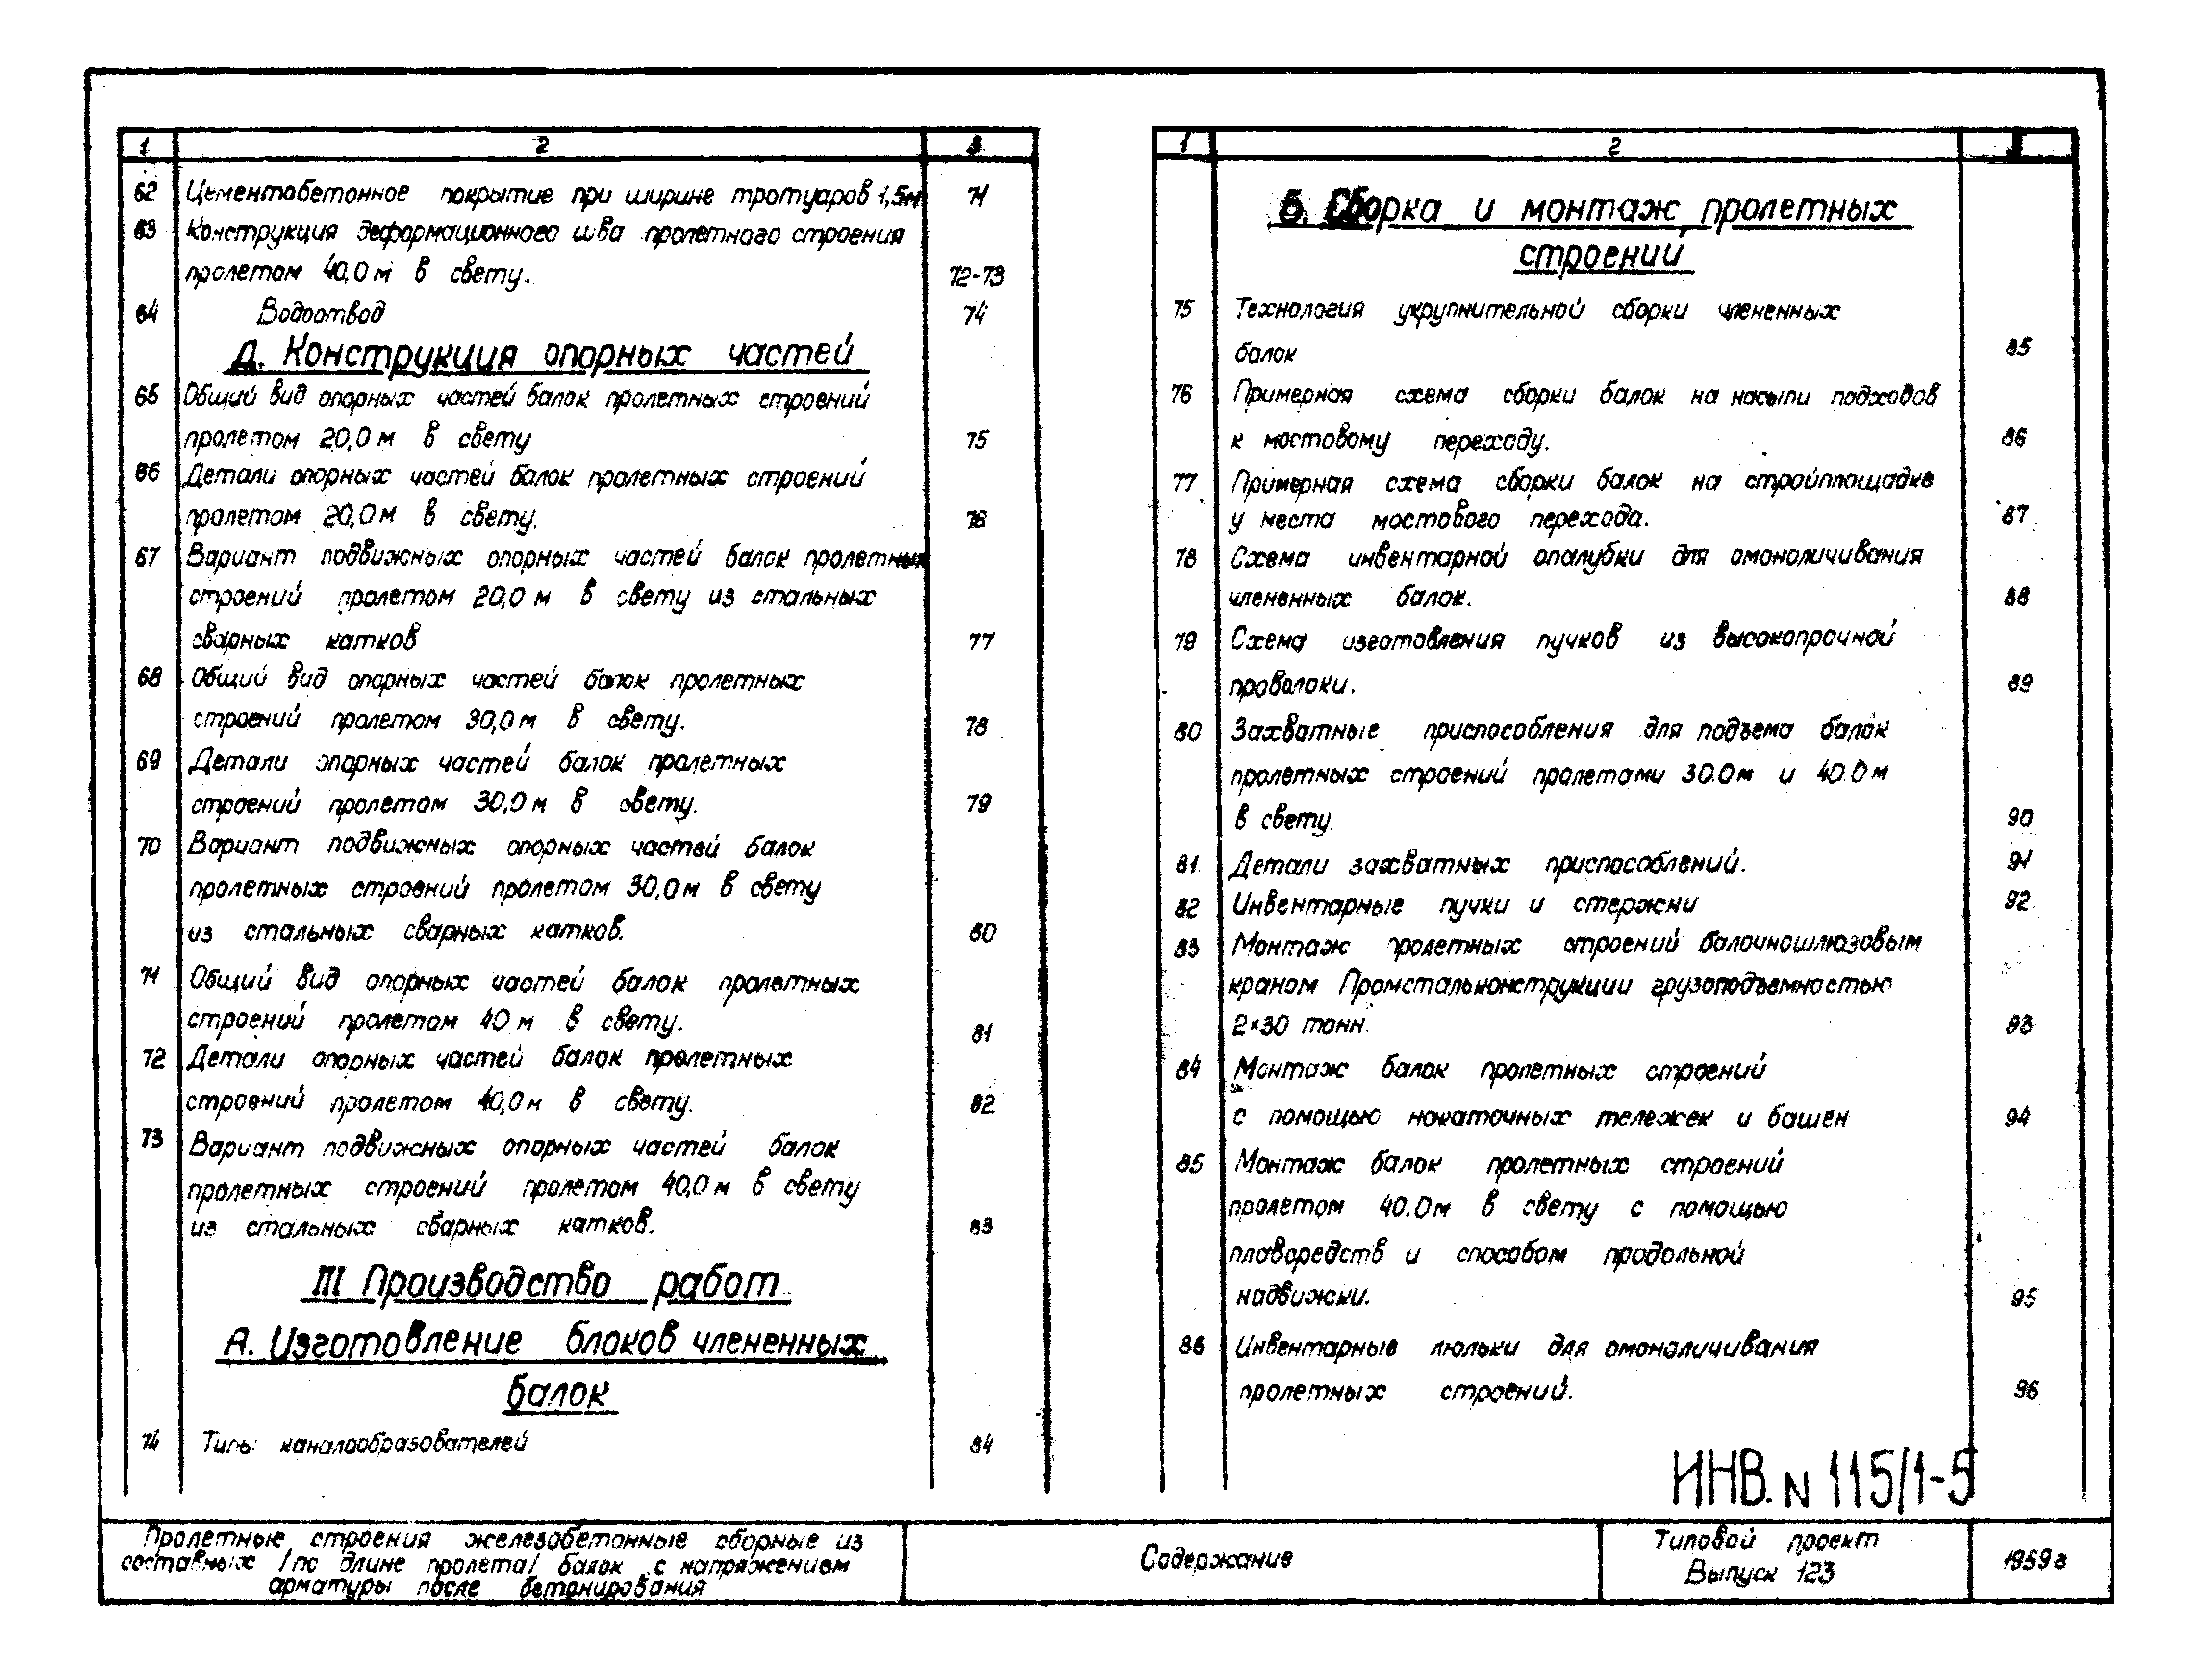 1 2 3
62 Цементобетонное покрытие при ширине тротуаров 1,5м 71
63 Конструкция деформационного шва пролетного строения
пролетом 40,0м в свету. 72-73
64 Водоотвод 74
Д. Конструкция опорных частей
65 Общий вид опорных частей балок пролетных строений
пролетом 20,0м в свету 75
66 Детали опорных частей балок пролетных строений
пролетом 20,0м в свету. 76
67 Вариант подвижных опорных частей балок пролетных
строений пролетом 20,0м в свету из стальных
сварных катков 77
68 Общий вид опорных частей балок пролетных
строений пролетом 30,0м в свету. 78
69 Детали опорных частей балок пролетных
строений пролетом 30,0м в свету. 79
70 Вариант подвижных опорных частей балок
пролетных строений пролетом 30,0м в свету
из стальных сварных катков. 80
71 Общий вид опорных частей балок пролетных
строений пролетом 40м в свету. 81
72 Детали опорных частей балок пролетных
строений пролетом 40,0м в свету. 82
73 Вариант подвижных опорных частей балок
пролетных строений пролетом 40,0м в свету
из стальных сварных катков. 83
III Производство работ
А. Изготовление блоков члененных
балок
74 Типы каналообразователей 84
1 2
Б. Сборка и монтаж пролетных
строений
75 Технология укрупнительной сборки члененных
балок 85
76 Примерная схема сборки балок на насыпи подходов
к мостовому переходу. 86
77 Примерная схема сборки балок на стройплощадке
у места мостового перехода. 87
78 Схема инвентарной опалубки для омоноличивания
члененных балок. 88
79 Схема изготовления пучков из высокопрочной
проволоки. 89
80 Захватные приспособления для подъема балок
пролетных строений пролетами 30.0м и 40.0м
в свету. 90
81 Детали захватных приспособлений. 91
82 Инвентарные пучки и стержни 92
83 Монтаж пролетных строений балочношлюзовым
краном Промстальконструкции грузоподъемностью
2×30 тонн. 93
84 Монтаж балок пролетных строений
с помощью накаточных тележек и башен 94
85 Монтаж балок пролетных строений
пролетом 40.0м в свету с помощью
плавсредств и способом продольной
надвижки. 95
86 Инвентарные люльки для омоноличивания
пролетных строений. 96
ИНВ. N 115/1-5
Пролетные строения железобетонные сборные из
составных /по длине пролета/ балок с напряжением
арматуры после бетонирования
Содержание
Типовой проект
Выпуск 123
1959г